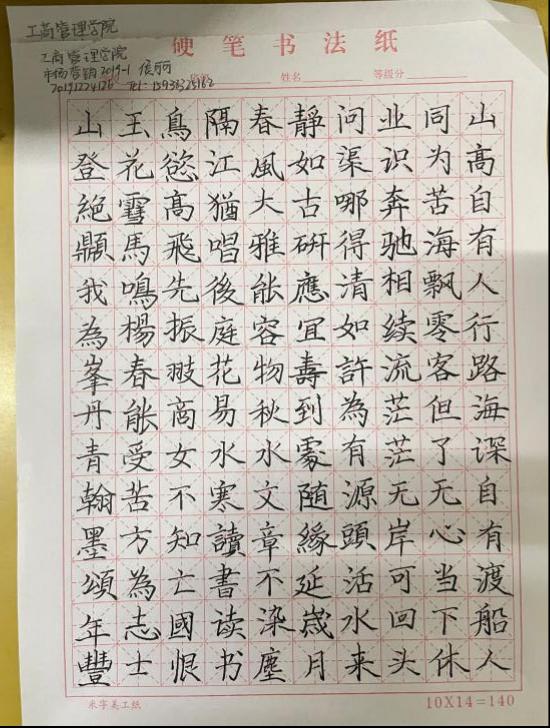 工商管理学院
硬笔书法纸
工商管理学院
市场营销2019-1
姓名
等级分
山高自有人行路海深自有渡船人
同为苦海飘零客但了无心当下休
业识奔驰相续流茫茫无岸可回头
问渠哪得清如許為有源頭活水来
靜如古研應宜壽到處随緣延歲月
春風大雅能容物秋水文章不染塵
隔江猶唱後庭花易水寒讀書读书
鳥慾高飛先振翅商女不知亡國恨
玉花雪馬鳴楊春能受苦方為志士
山登絕顛我為峯丹青翰墨頌年豐
米字美工纸
10X14=140